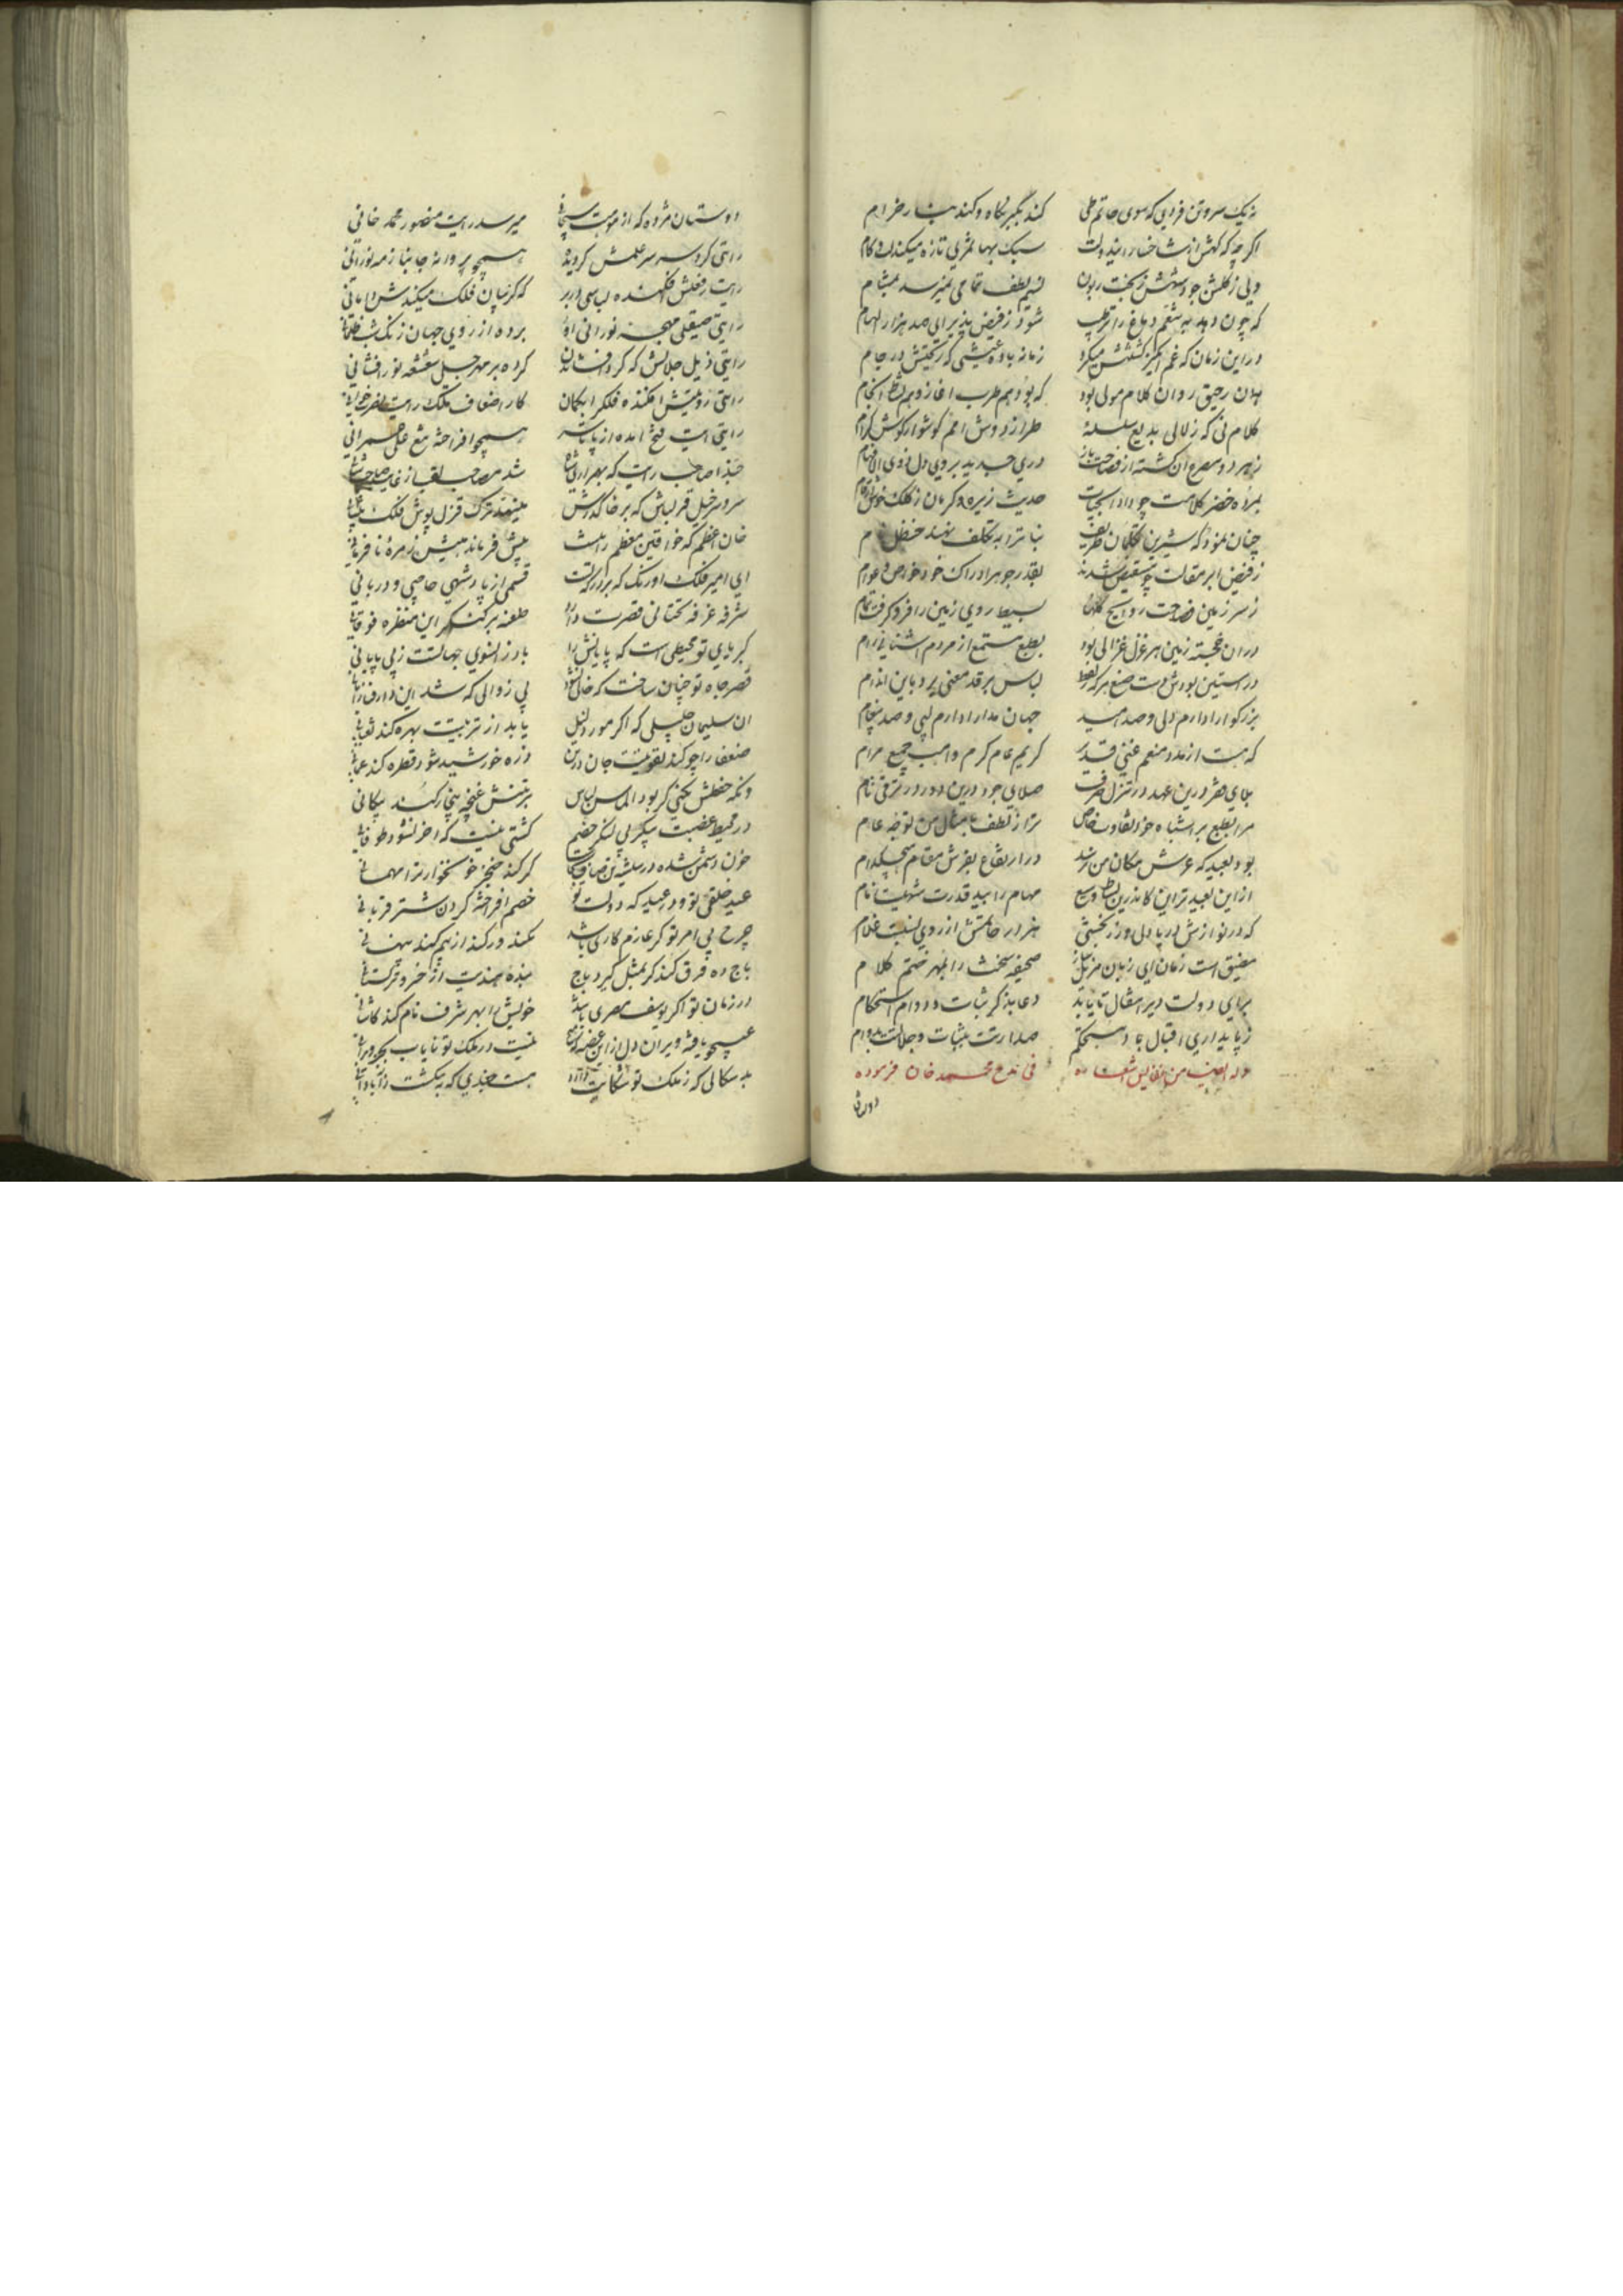 نه یک سر و تن فردی که سوی حاتم طی کند بگیر نگاه و کند بنا رخرام
اگرچه که کهش از شاخسار امید ولت سبک بها ثمری تازه میکند در کام
ولی ز گلشن جودش ز بخت زبون نسیم لطف تمامی نمیرسد بمشام
که چون دهد بمشم دماغ را ترطیب شود ز فیض پذیرای صد هزار الهام
در این زمان که غم انگیز میکرد زمانه باده عیشی که ریختش در جام
بدان رحیق روان کلام مولی بود که بود هم طرب آغاز و هم نشاط انجام
کلام نی که زلالی بدیع سلسلهٔ طراز دوش امم گوشوار گوش کرام
ز هر دو مصرع آن گشته از فصاحت باز دری جدید بروی دل ذوی الافهام
بمرده خضر کلامت چو داد آبحیات حدیث زیره و کرمان ز کلک خوش
چنان نمود که شیرین تکلمان ظریف نبات را به تکلف نهند حنظل نام
ز فیض ابر مقالت چو مستفیض شدند بقدر جوهر ادراک خود خواص و عوام
ز سر زمین فصاحت روایح گلها بسیط روی زمین را فرو گرفت تمام
در آن خجسته زمین هر غزل غزالی بود بطبع مستمع از مردم آشنائی رام
در آستین بودش دست صنع هر که لباس بر قد معنی برد باین اندام
بزرگوارا دارم دلی و صد امید جهان مدارا دارم لبی و صد پیغام
که هست از مدد منعم غنی قدیر کریم عام کرم واهب جمیع مرام
بلای فقر درین عهد در تنزل صرف صلای جود درین دور در ترقی تام
مرا بطبع بر اشتباه خود تفاوت خاص ترا ز لطف بامثال من توجه عام
بود بعید که عرش مکان من نشد در ارتفاع بفرش مقام هیچکدام
از این بعیدتر این کاندرین بساط وسیع مهام را بید قدرت شهیست نام
که در نوازش دریا دل و زر بخشی هزار حاتمش از روی نسبت غلام
مضیق است زمان ای زبان مزن صحیفه سخنت را بمهر ختم کلام
برای دولت دیر مقال تا یابد دعا بذکر ثبات و دوام استحکام
ز پایداری اقبال باد مستحکم صدارتت بثبات و جلالت بدوام
وله ایضا من نفایس اشعاره فی مدح محمد خان فرموده
دوستان
دوستان مژده که از موهبت سبحانی میرسد رایت منصور محمد خانی
رایتی کرده سر سر علمش گردیده همچو پروانهٔ جانباز مه نورانی
رایت رفعتش افکنده لباسی در بر که گریبان فلک میکندش دامانی
رایتی صیقلی مهجهٔ نورانی او برده از روی جهان زنگ شب ظلمانی
رایتی ذیل جلالش که کرد افشاند کرده بر مهر جبل شعشعه نور افشانی
رایتی رؤیتش افکنده فلک را بگمان کار اضعاف ملک رایت
رایتی آیت فتح آمده از پا تا سر همچو افراخته شمع علی عمرانی
حبذا صاحب رایت که بهر شد مصاحب لقب از غایت
سرور خیل قزلباش که بر خاک درش مینهد ترک قزل پوش فلک پیشانی
خان اعظم که خواقین معظم را هست پیش فرماندهیش زمرهٔ نافرمانی
ای امیر فلک اورنگ که بر درگه تست قسمی از پادشهی حاجبی و دربانی
شرفهٔ غرفهٔ تحتانی قصرت دارد طعنه بر کنگر این منظره فوقانی
کبریای تو محیطی است که پایانش را باد ز آنسوی جهالتست ز بی پایانی
قصر جاه تو چنان ساخت که خالی نشود بی زوالی که شد این دار فنا را بانی
آن سلیمان جلیلی که اگر مور ذلیل یابد از تربیتت بهره کند ثعبانی
ضعفا را چو کند تقویتت جان در تن ذره خورشید شود قطره کند عمانی
وانکه حفظش نکنی گر بود الماس لباس بر تنش غنچه بیخار کند پیکانی
در محیط غضبت پیکر بی لنگر خصم کشتی نیست که آخر نشود طوفانی
خون دشمن شده در شیشهٔ تن صاف گر کند خنجر خونخوار ترا مهمانی
عید خلقی تو و در عید که دولت تو خصم افراخته گردن شتر قربانی
چرخ بی امر تو گر عازم کاری باشد نکند ور کند از بیم کند پنهانی
باج ده فرق کند گر بمثل گیرد باج بنده هندیت از خسرو ترکستانی
در زمان تو اگر یوسف مصری باشد خویش را بهر شرف نام کند کاشانی
همچو یافته ویران دل ازین غصه نیست در ملک تو نایاب بجز ویرانی
بد سگالی که ز ملک تو شکایت دارد هست جغدی که بکشت ز آبادانی